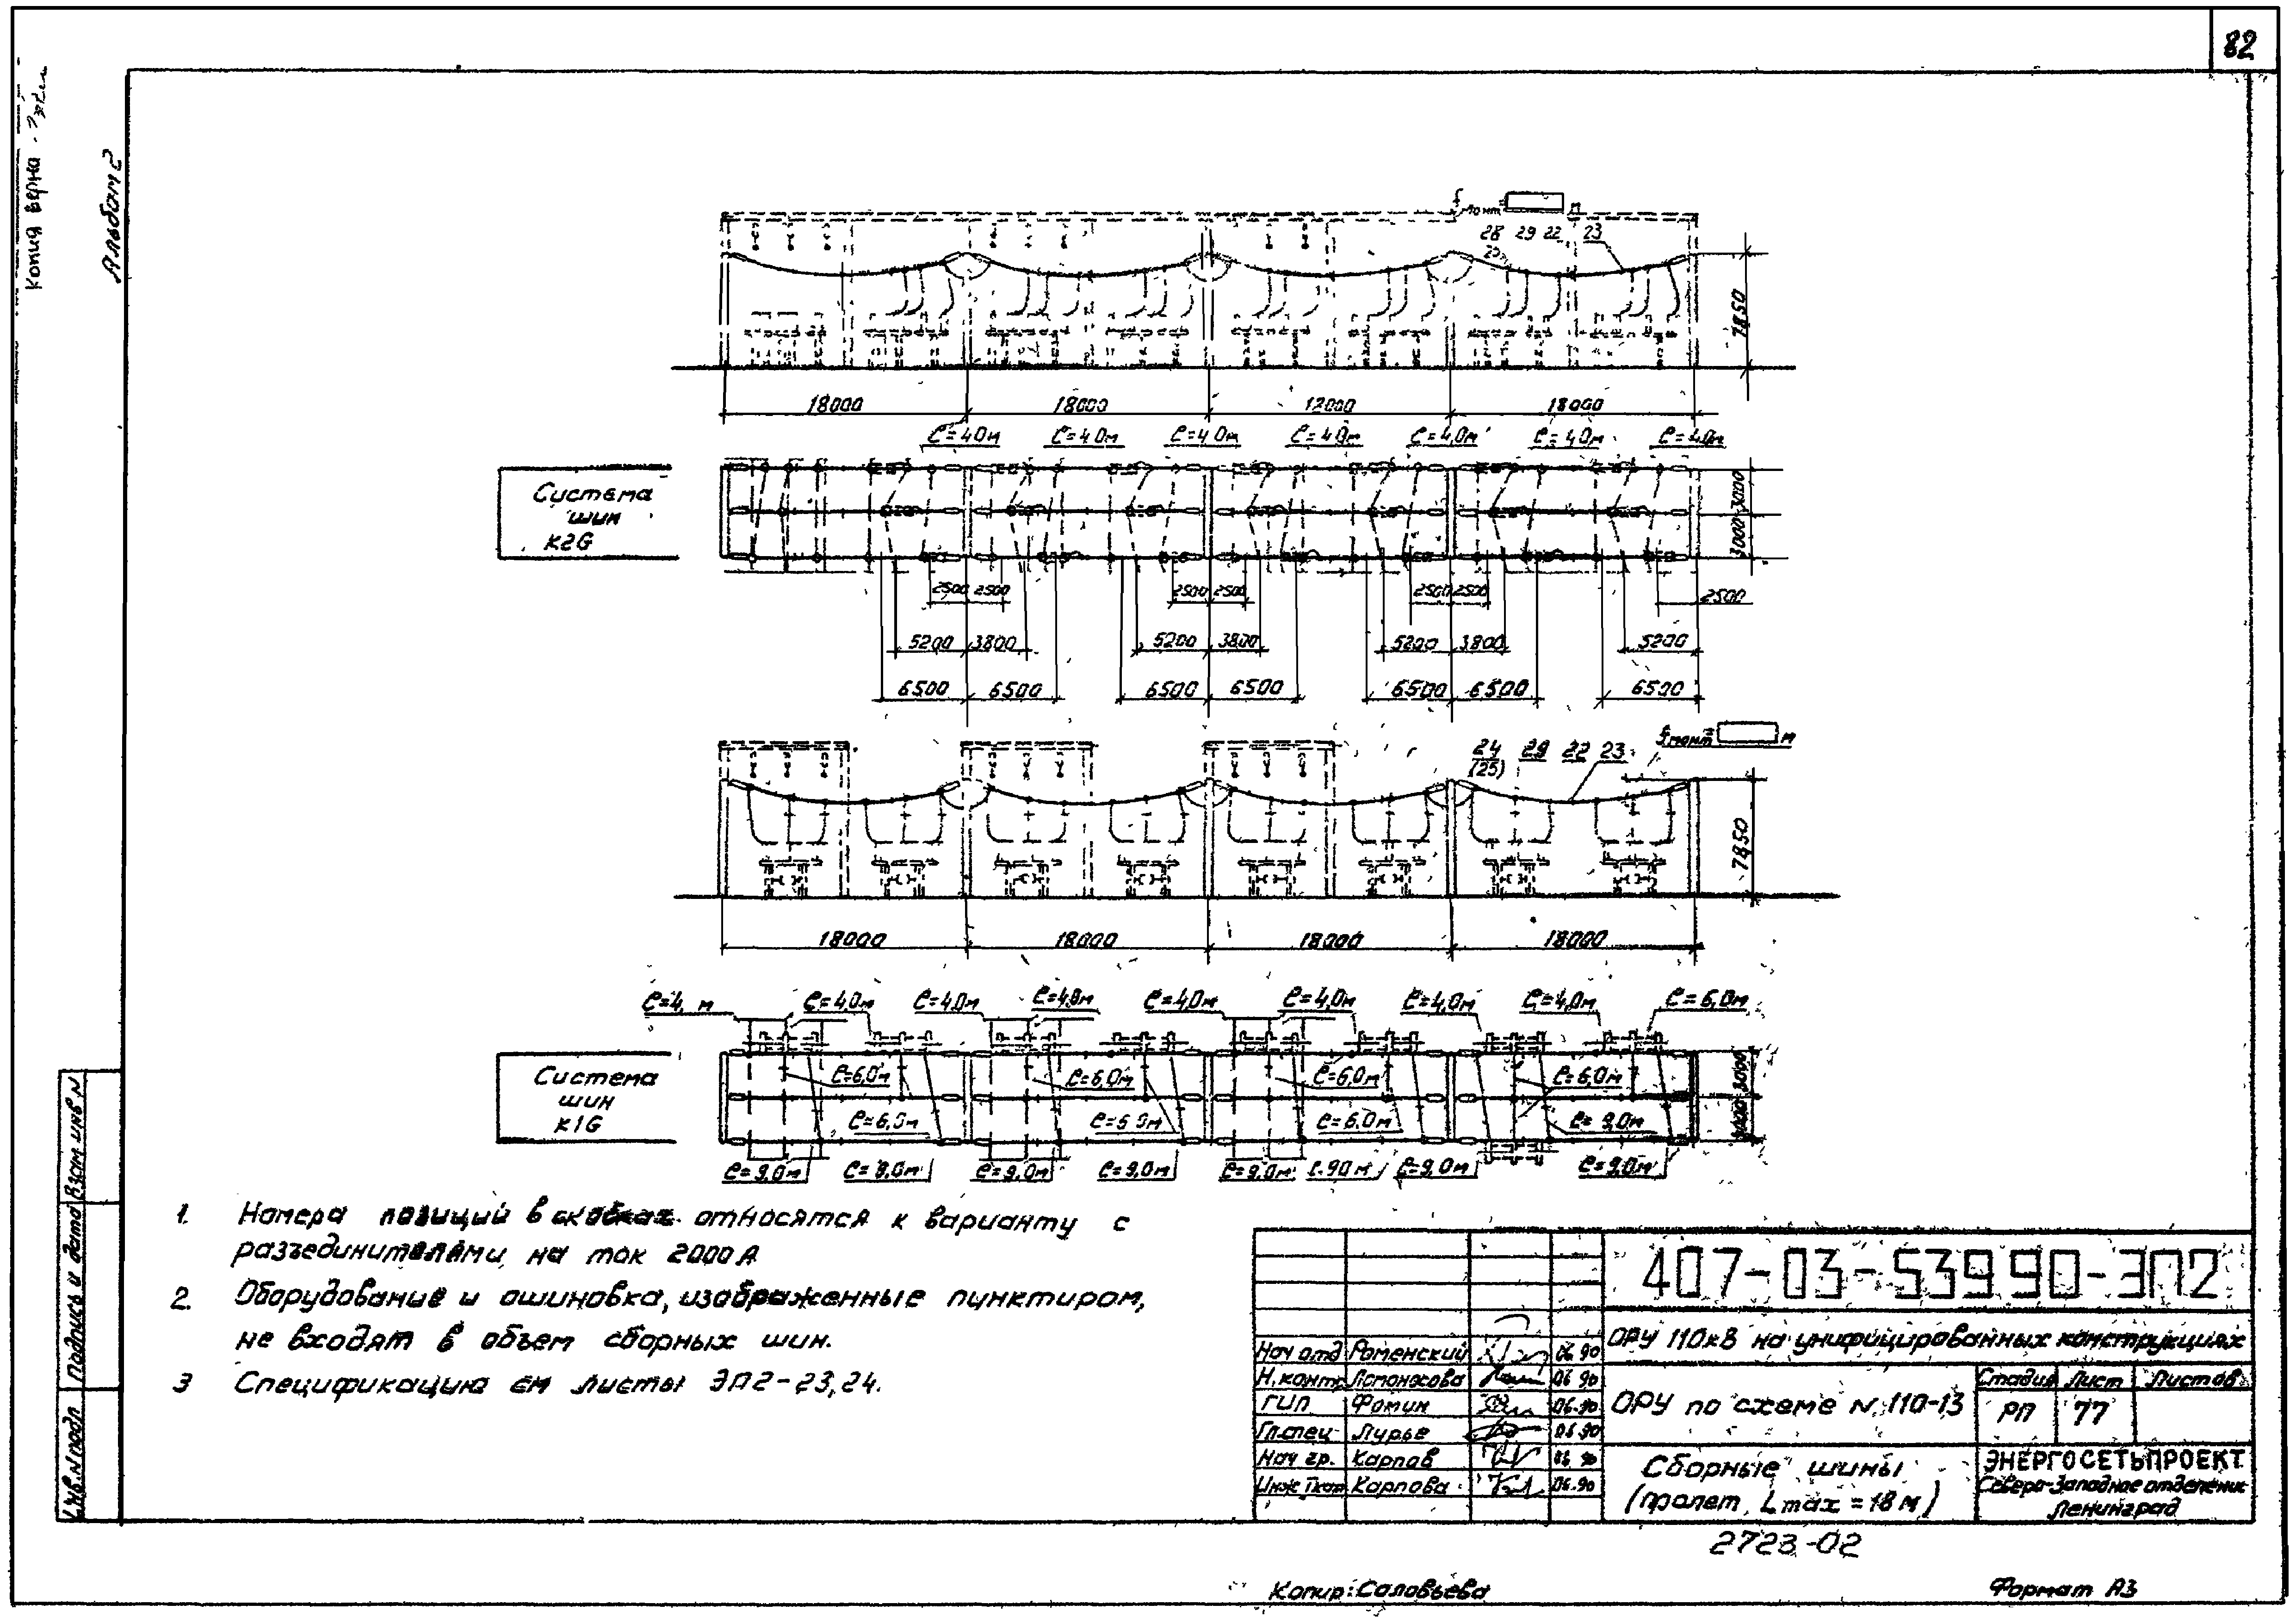 82
Копия верна
Альбом 2
fмонт= м
28 29 22 23
7850
18000 18000 12000 18000
ℓ=4.0м ℓ=4.0м ℓ=4.0м ℓ=4.0м ℓ=4.0м ℓ=4.0м ℓ=4.0м
Система
шин
К2G
3000 3000
2500 2500 2500 2500 2500 2500 2500
5200 3800 5200 3800 5200 3800 5200
6500 6500 6500 6500 6500 6500 6500
fмонт= м
24 29 22 23
(25)
7850
18000 18000 18000 18000
ℓ=4. м ℓ=4,0м ℓ=4,0м ℓ=4,0м ℓ=4,0м ℓ=4,0м ℓ=4,0м ℓ=4,0м ℓ=6,0м
Система
шин
К1G
ℓ=6,0м ℓ=6,0м ℓ=6,0м ℓ=6,0м
3000 3000
ℓ=6,0м ℓ=6 0м ℓ=6,0м ℓ=9,0м
ℓ=9,0м ℓ=9,0м ℓ=9,0м ℓ=9,0м ℓ=9,0м ℓ.90м ℓ=9,0м ℓ=9,0м
1. Номера позиций в скобках относятся к варианту с
разъединителями на ток 2000 А
2. Оборудование и ошиновка, изображенные пунктиром,
не входят в объем сборных шин.
3 Спецификацию см листы ЭП2-23,24.
407-03-539.90-ЭП2
ОРУ 110кВ на унифицированных конструкциях
Нач отд Роменский 06 90
Н.контр. Ломоносова 06 90
ГИП Фомин 06.90
Гл.спец Лурье 06.90
Нач гр. Карпов 06 90
Инж Iкат Карпова 06.90
ОРУ по схеме N 110-13
Стадия Лист Листов
РП 77
Сборные шины
(пролет Lmax = 18 м)
ЭНЕРГОСЕТЬПРОЕКТ
Северо-Западное отделение
Ленинград
2723-02
Копир: Соловьева
Формат А3
Инв. N подл Подпись и дата Взам инв N